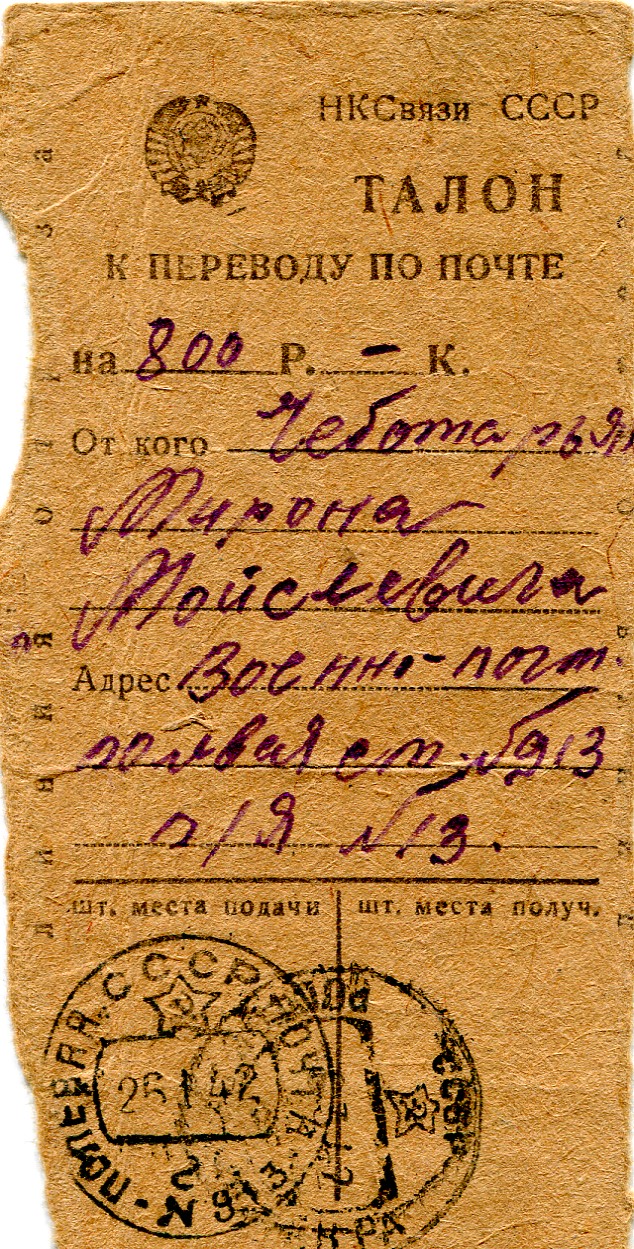 НКСвязи СССР
ТАЛОН
К ПЕРЕВОДУ ПО ПОЧТЕ
на 800 Р. — К.
От кого Чеботарья
Мирона
Мойсеевича
Адрес Военно-почт.
полевая ст. №913
п/я №13.
шт. места подачи
шт. места получ.
ПОЛЕВАЯ СССР ПОЧТА
26 1 42
N 913
СССР
Линия отреза